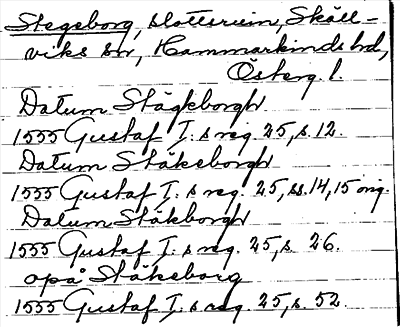 Stegeborg, slottsruin, Skäll-
viks sn, Hammarkinds hd,
Österg. l.
Datum Stägheborgh
1555 Gustaf I:s reg. 25, s. 12.
Datum Stäkeborgh
1555 Gustaf I:s reg. 25, ss. 14, 15 orig.
Datum Stäkborgh
1555 Gustaf I:s reg. 25, s. 26.
opå Stäkeborg
1555 Gustaf I:s reg. 25, s. 52.